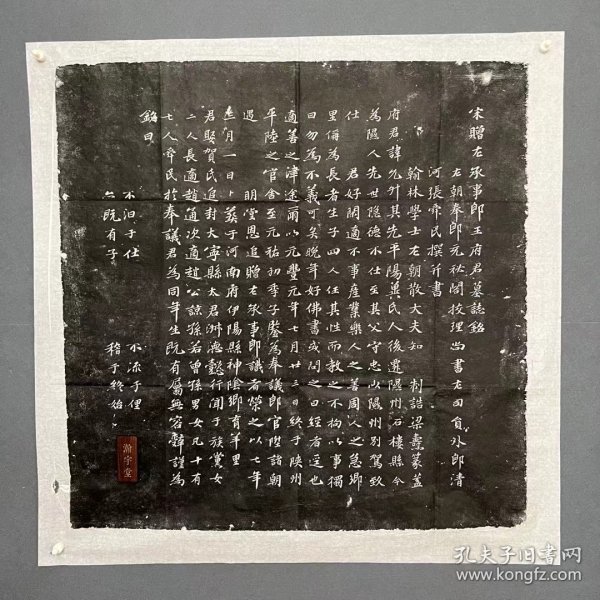 宋贈左承事郎王府君墓誌銘
左朝奉郎充秘閣校理尚書左司員外郎清
河張舜民撰并書
翰林學士左朝散大夫知制誥梁燾篆蓋
府君諱允升其先平陽冀氏人後遷隰州石樓縣今
為隰人先世隱德不仕至其父守忠山隰州別駕致
仕 君好閒適不事産業樂人之善周人之急鄉
里偁為長者生子四人任其性而教之不拘以事獨
曰勿為不義可矣晚年好佛書或問之曰經者逕也
適善之津途爾以元豐元年七月廿三日終于陝州
平陸之官舍至元祐初季子鑒為奉議郎官陞諸朝
遇 明堂恩追贈左承事郎議者榮之以七年
十一月一日卜葬于河南府伊陽縣神陰鄉有羊里
君娶賀氏追封大寧縣太君淑德懿行聞于族黨女
二人長適趙適次適趙公諒孫若曾孫男女凡十有
七人舜民於奉議君為同年生既有屬無容辭謹為
銘曰
不汩于仕 不涼于俚
既有子 稽于終始
瀚宇堂
孔夫子旧书网
www.kongfz.com